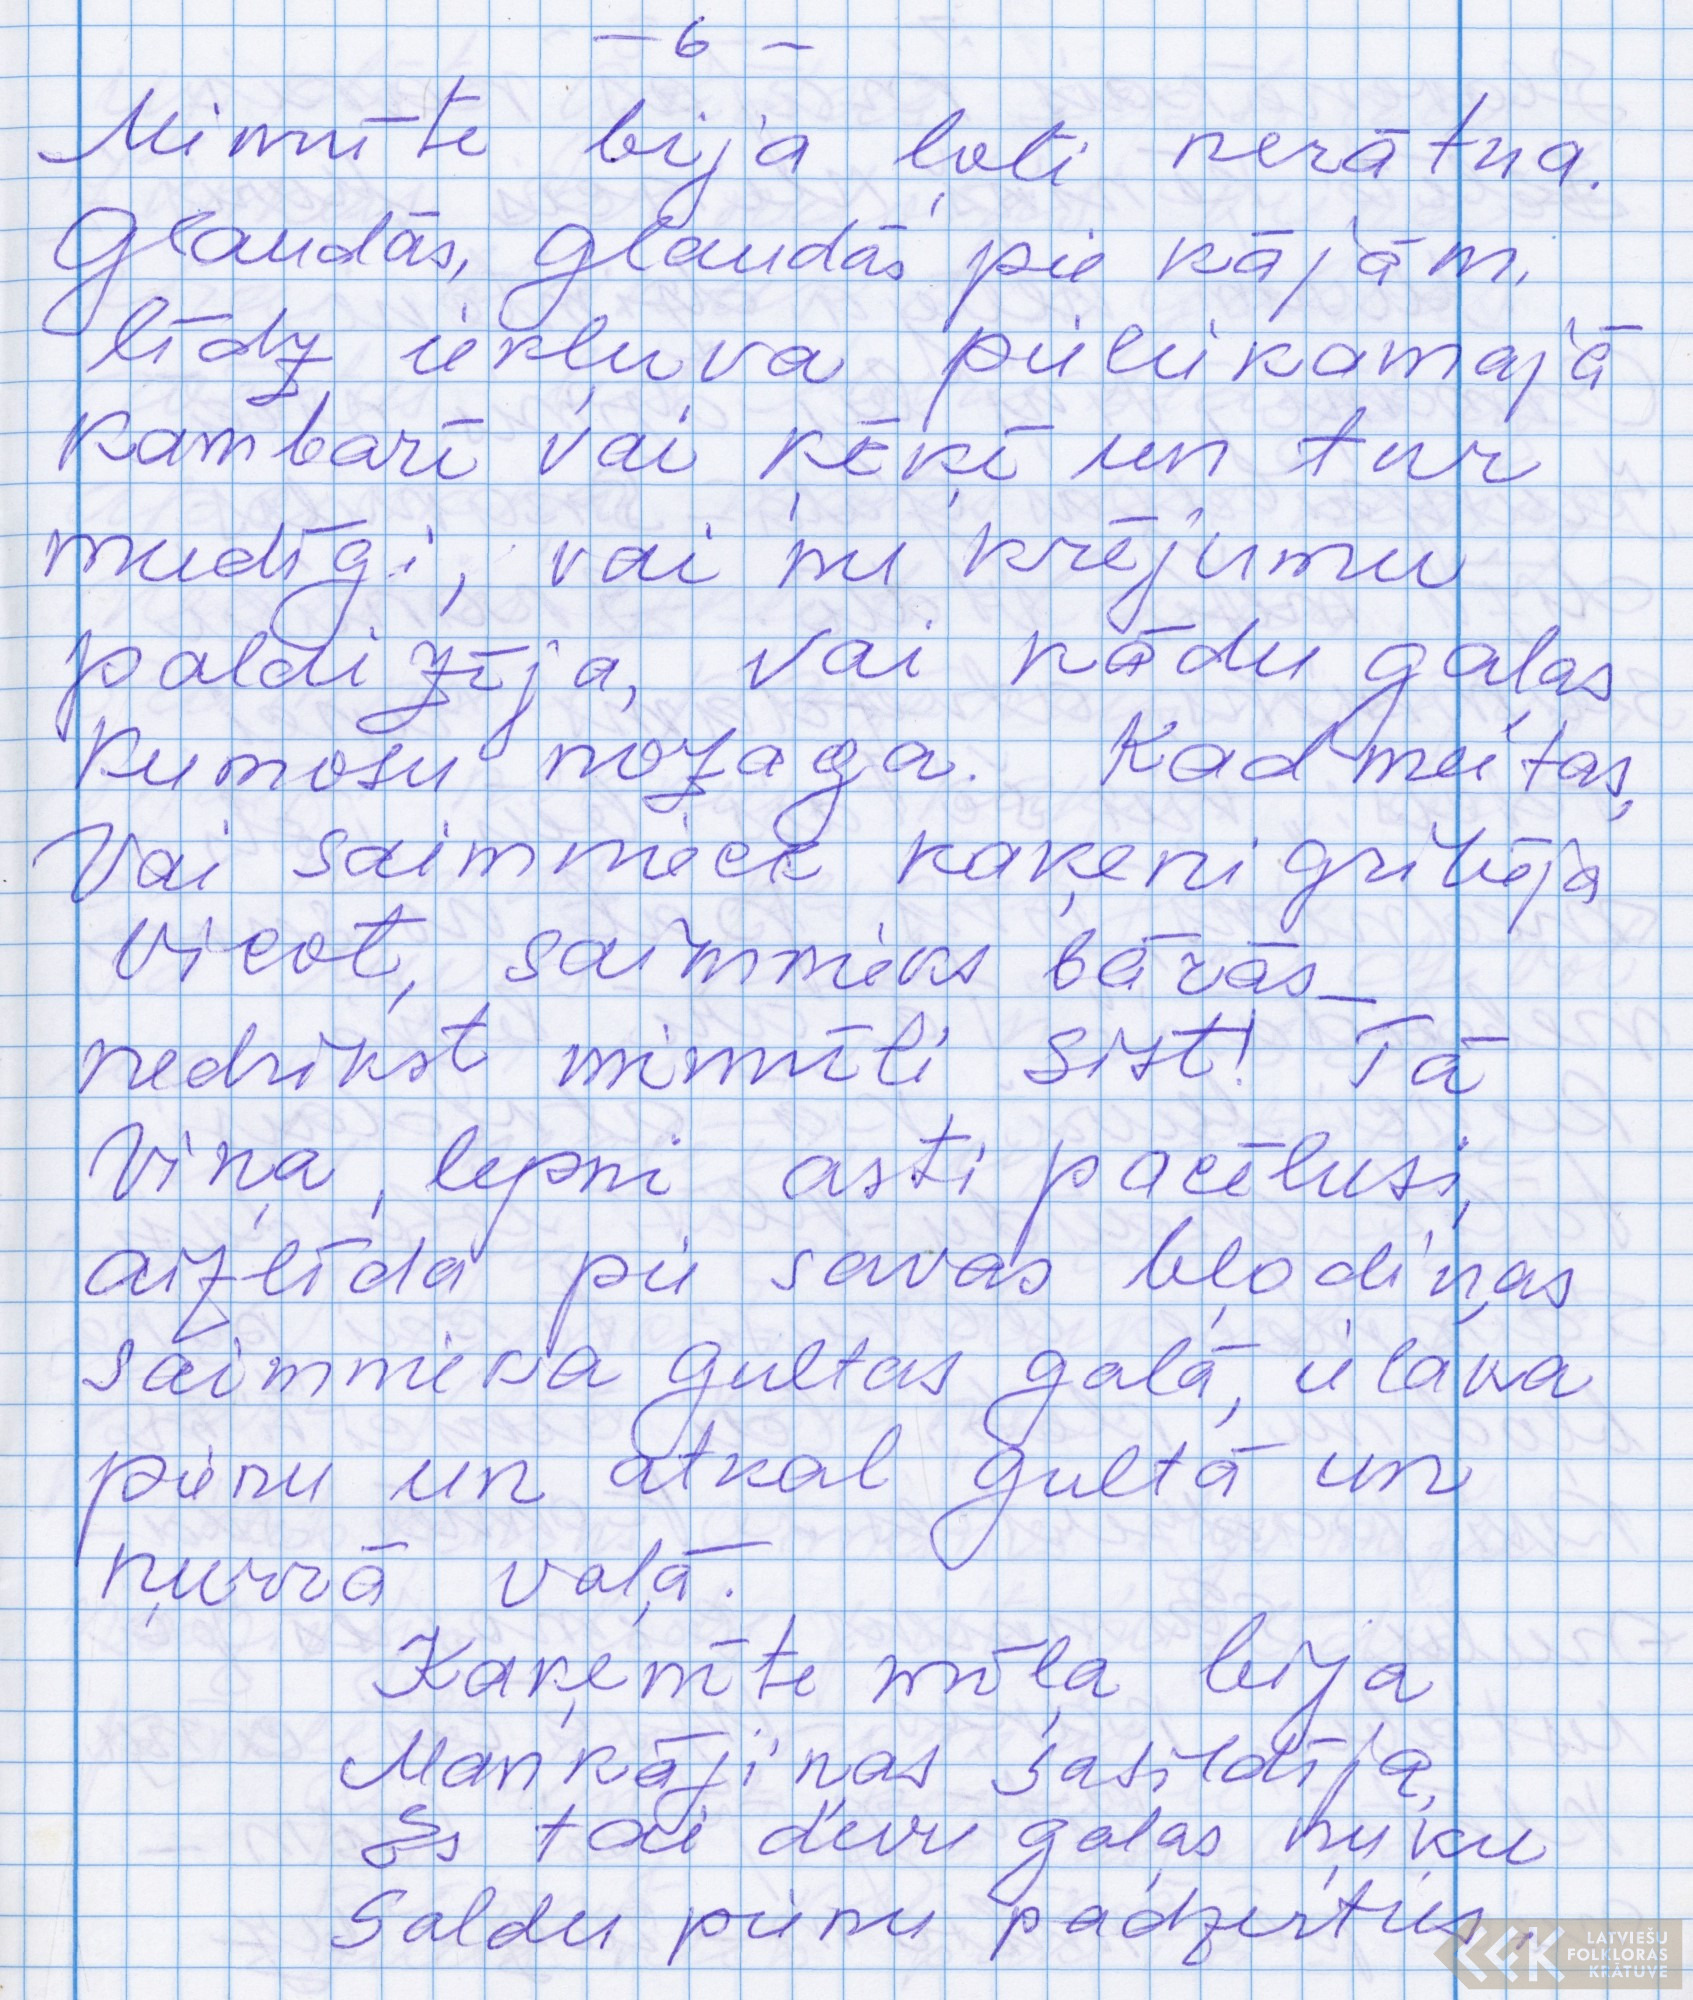 — 6 —
Minnīte bija ļoti nerātna.
Glaudās, glaudās pie kājām,
līdz iekļuva pieliekamajā
kambarī vai ķēķī un tur
mudīgi, vai nu krējumu
paldizīja, vai kādu gaļas
kumosu nozaga. Kad meitas,
Vai saimniece kaķeni gribēja
vicot, saimnieks bārās_
nedrikst minnīti sist! Tā
Viņa, lepni asti pacēlusi,
aizlīda pie savas bļodiņas
saimnieka gultas galā, ielaka
pienu un atkal gultā un
ņurrā vaļā.
Kaķenīte mīļa bija
Man kājiņas sasildīja,
Es tai devu gaļas ņuķu
Saldu pienu padzerties,
LATVIEŠU
FOLKLORAS
KRĀTUVE